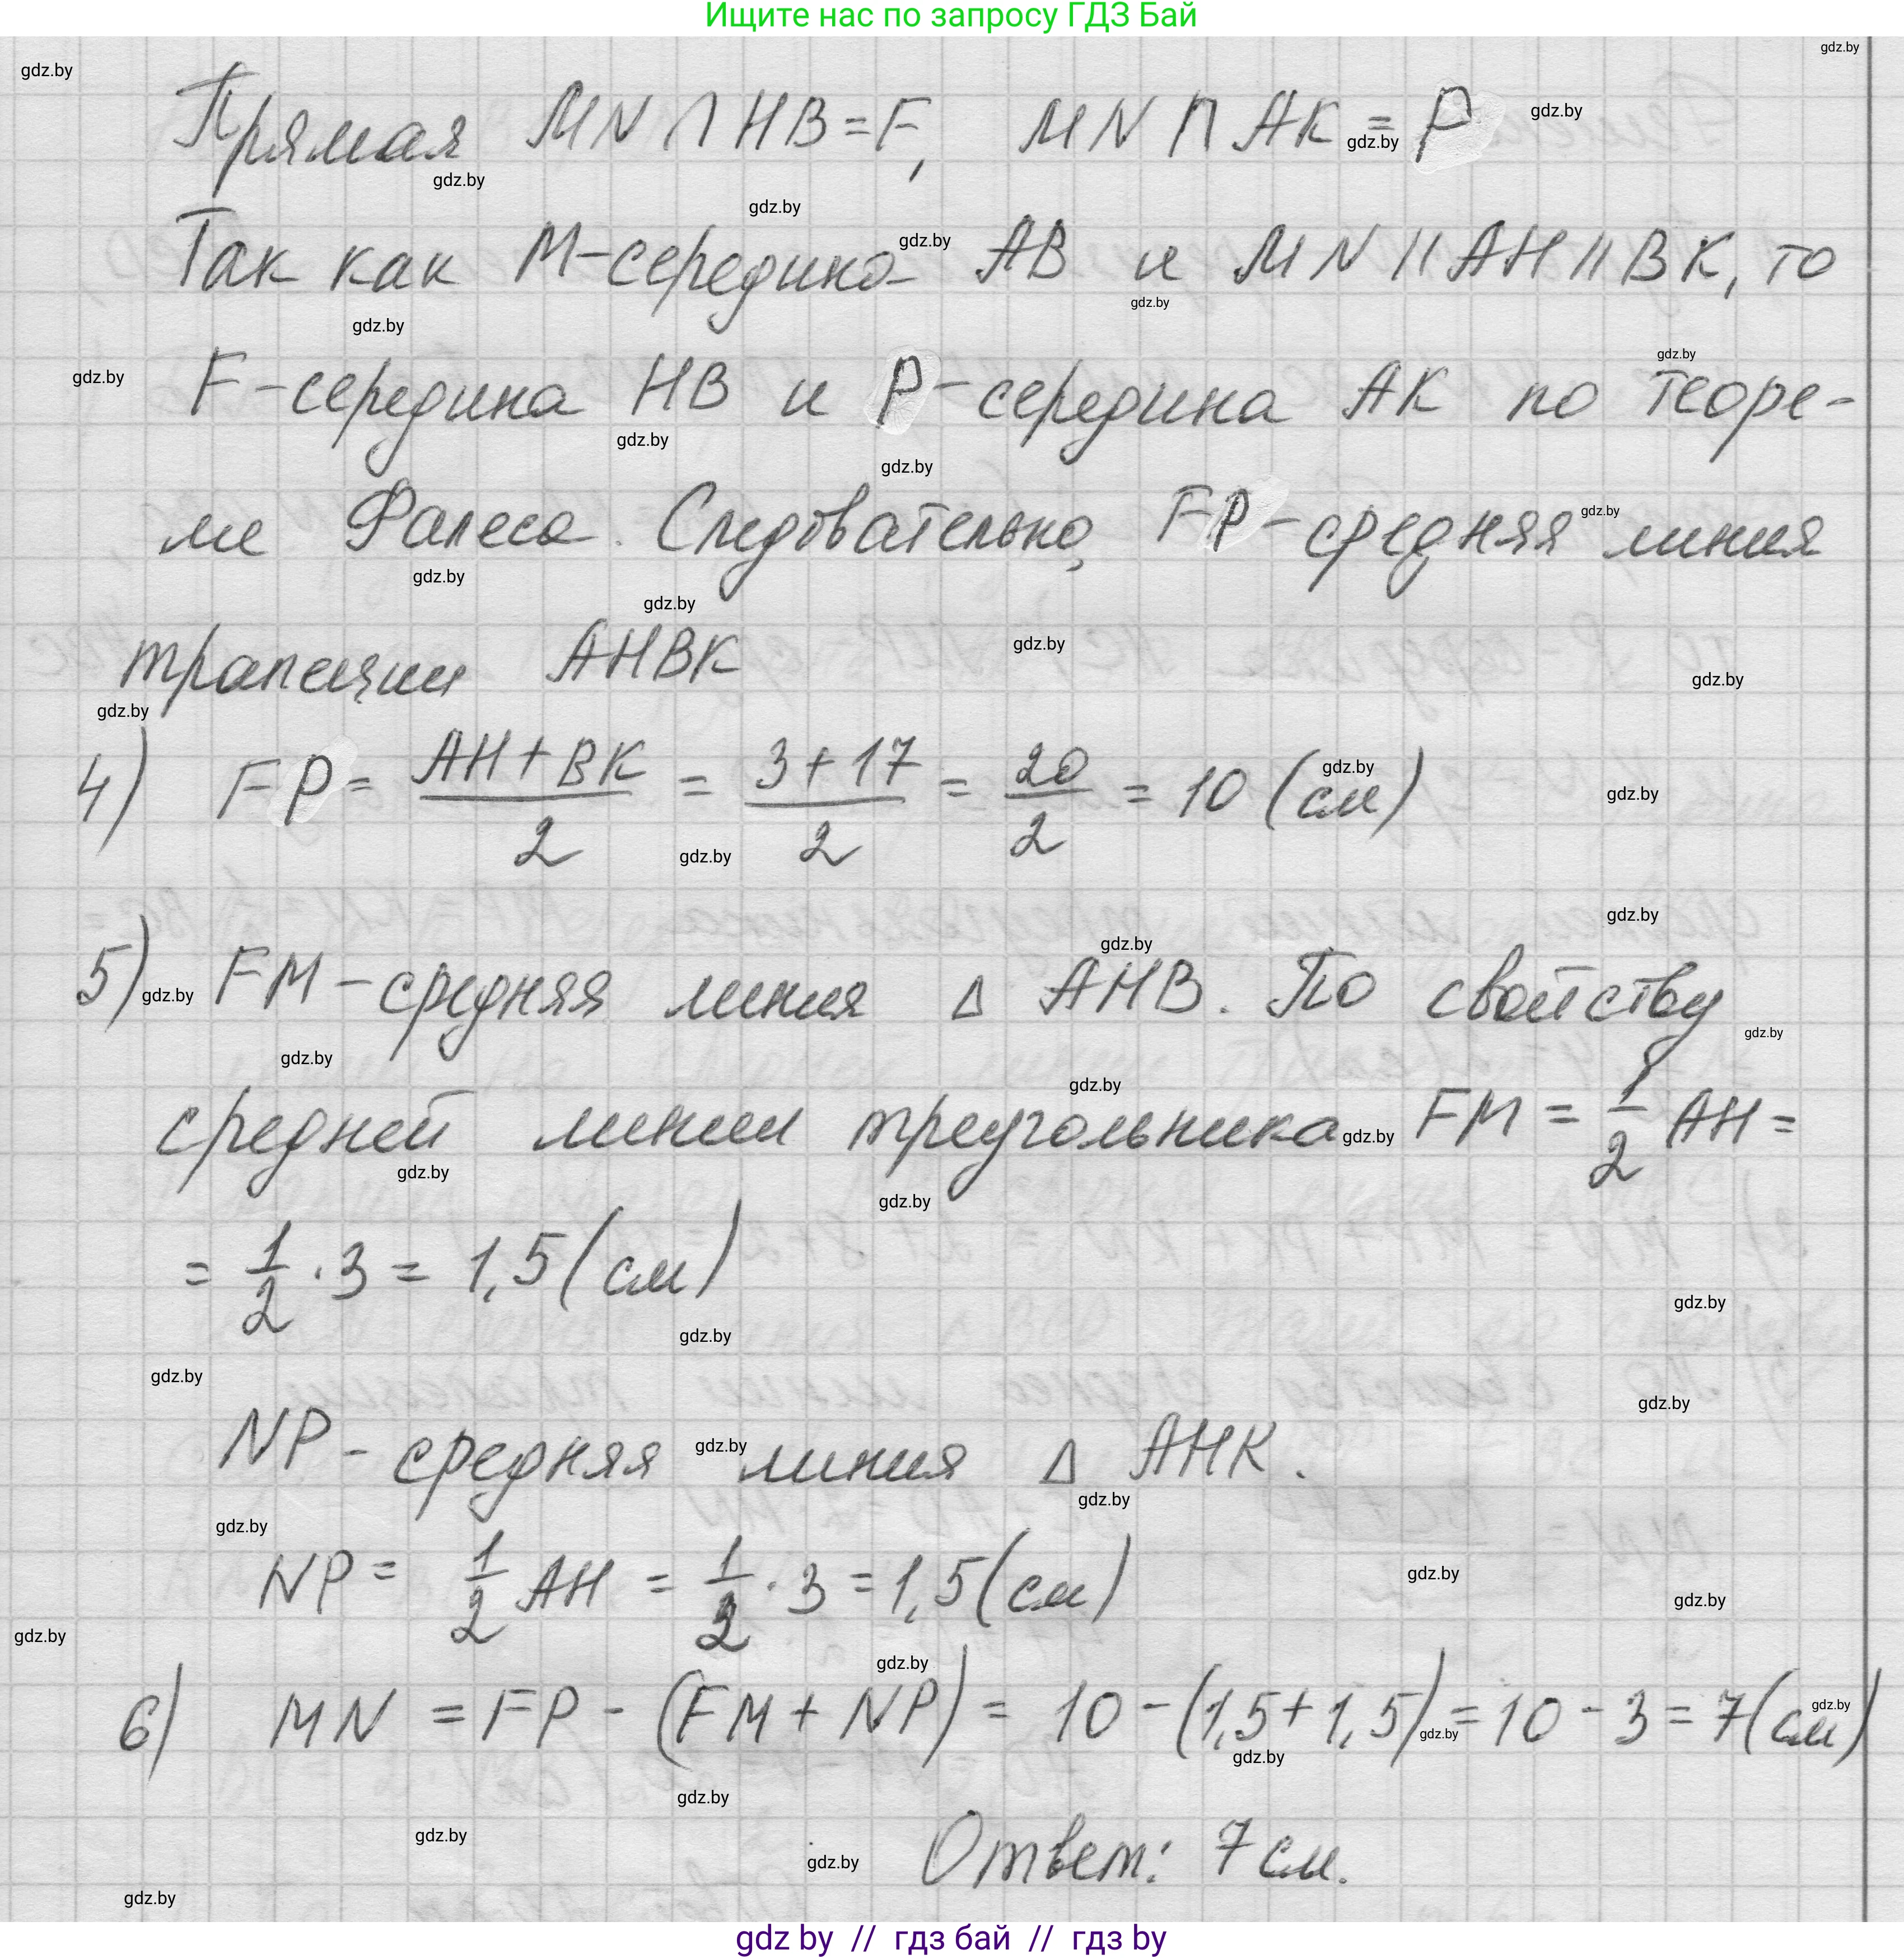 Ищите нас по запросу ГДЗ Бай
Прямая MN ∩ HB = F, MN ∩ AK = P
Так как M - середина AB и MN || AH || BK, то
F - середина HB и P - середина AK по теоре-
ме Фалеса. Следовательно, FP - средняя линия
трапеции AHBK
4) FP = (AH + BK)/2 = (3 + 17)/2 = 20/2 = 10 (см)
5) FM - средняя линия Δ AHB. По свойству
средней линии треугольника FM = 1/2 AH =
= 1/2 · 3 = 1,5 (см)
NP - средняя линия Δ AHK.
NP = 1/2 AH = 1/2 · 3 = 1,5 (см)
6) MN = FP - (FM + NP) = 10 - (1,5 + 1,5) = 10 - 3 = 7 (см)
Ответ: 7 см.
gdz by // гдз бай // гдз by